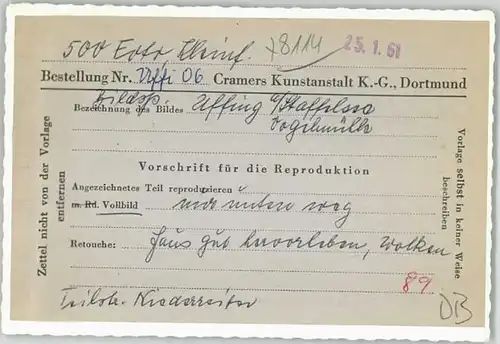 500 Foto Kleinf. 78114 25.1.61
Bestellung Nr. Uffi 06 Cramers Kunstanstalt K.-G., Dortmund
Bezeichnung des Bildes Uffing a/Staffelsee
Vorschrift für die Reproduktion
Angezeichnetes Teil reproduzieren
m. Rd. Vollbild unten weg
Retouche: Haus gut hervorheben, Wolken
89
DB
Zettel nicht von der Vorlage
entfernen
Vorlage selbst in keiner Weise
beschreiben